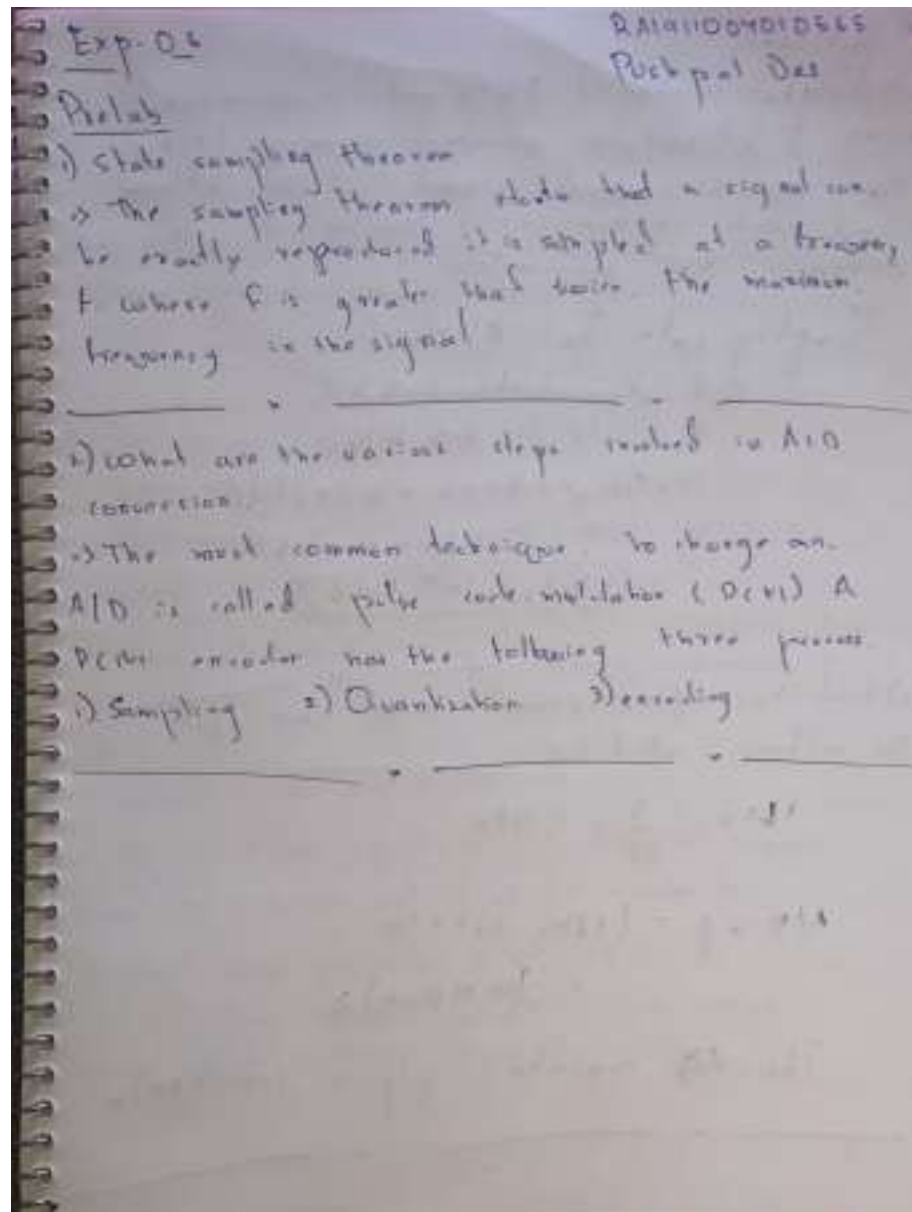 Exp-06
RA1911004010565
Pushpal Das
Prelab
1) State sampling theorem
=> The sampling theorem states that a signal can
be exactly reproduced it is sampled at a frequency
F where F is greater that twice the maximum
frequency in the signal
2) What are the various steps involved in A/D
conversion
=> The most common technique to change an
A/D is called pulse code modulation (PCM) A
PCM encoder has the following three process
1) Sampling 2) Quantization 3) encoding